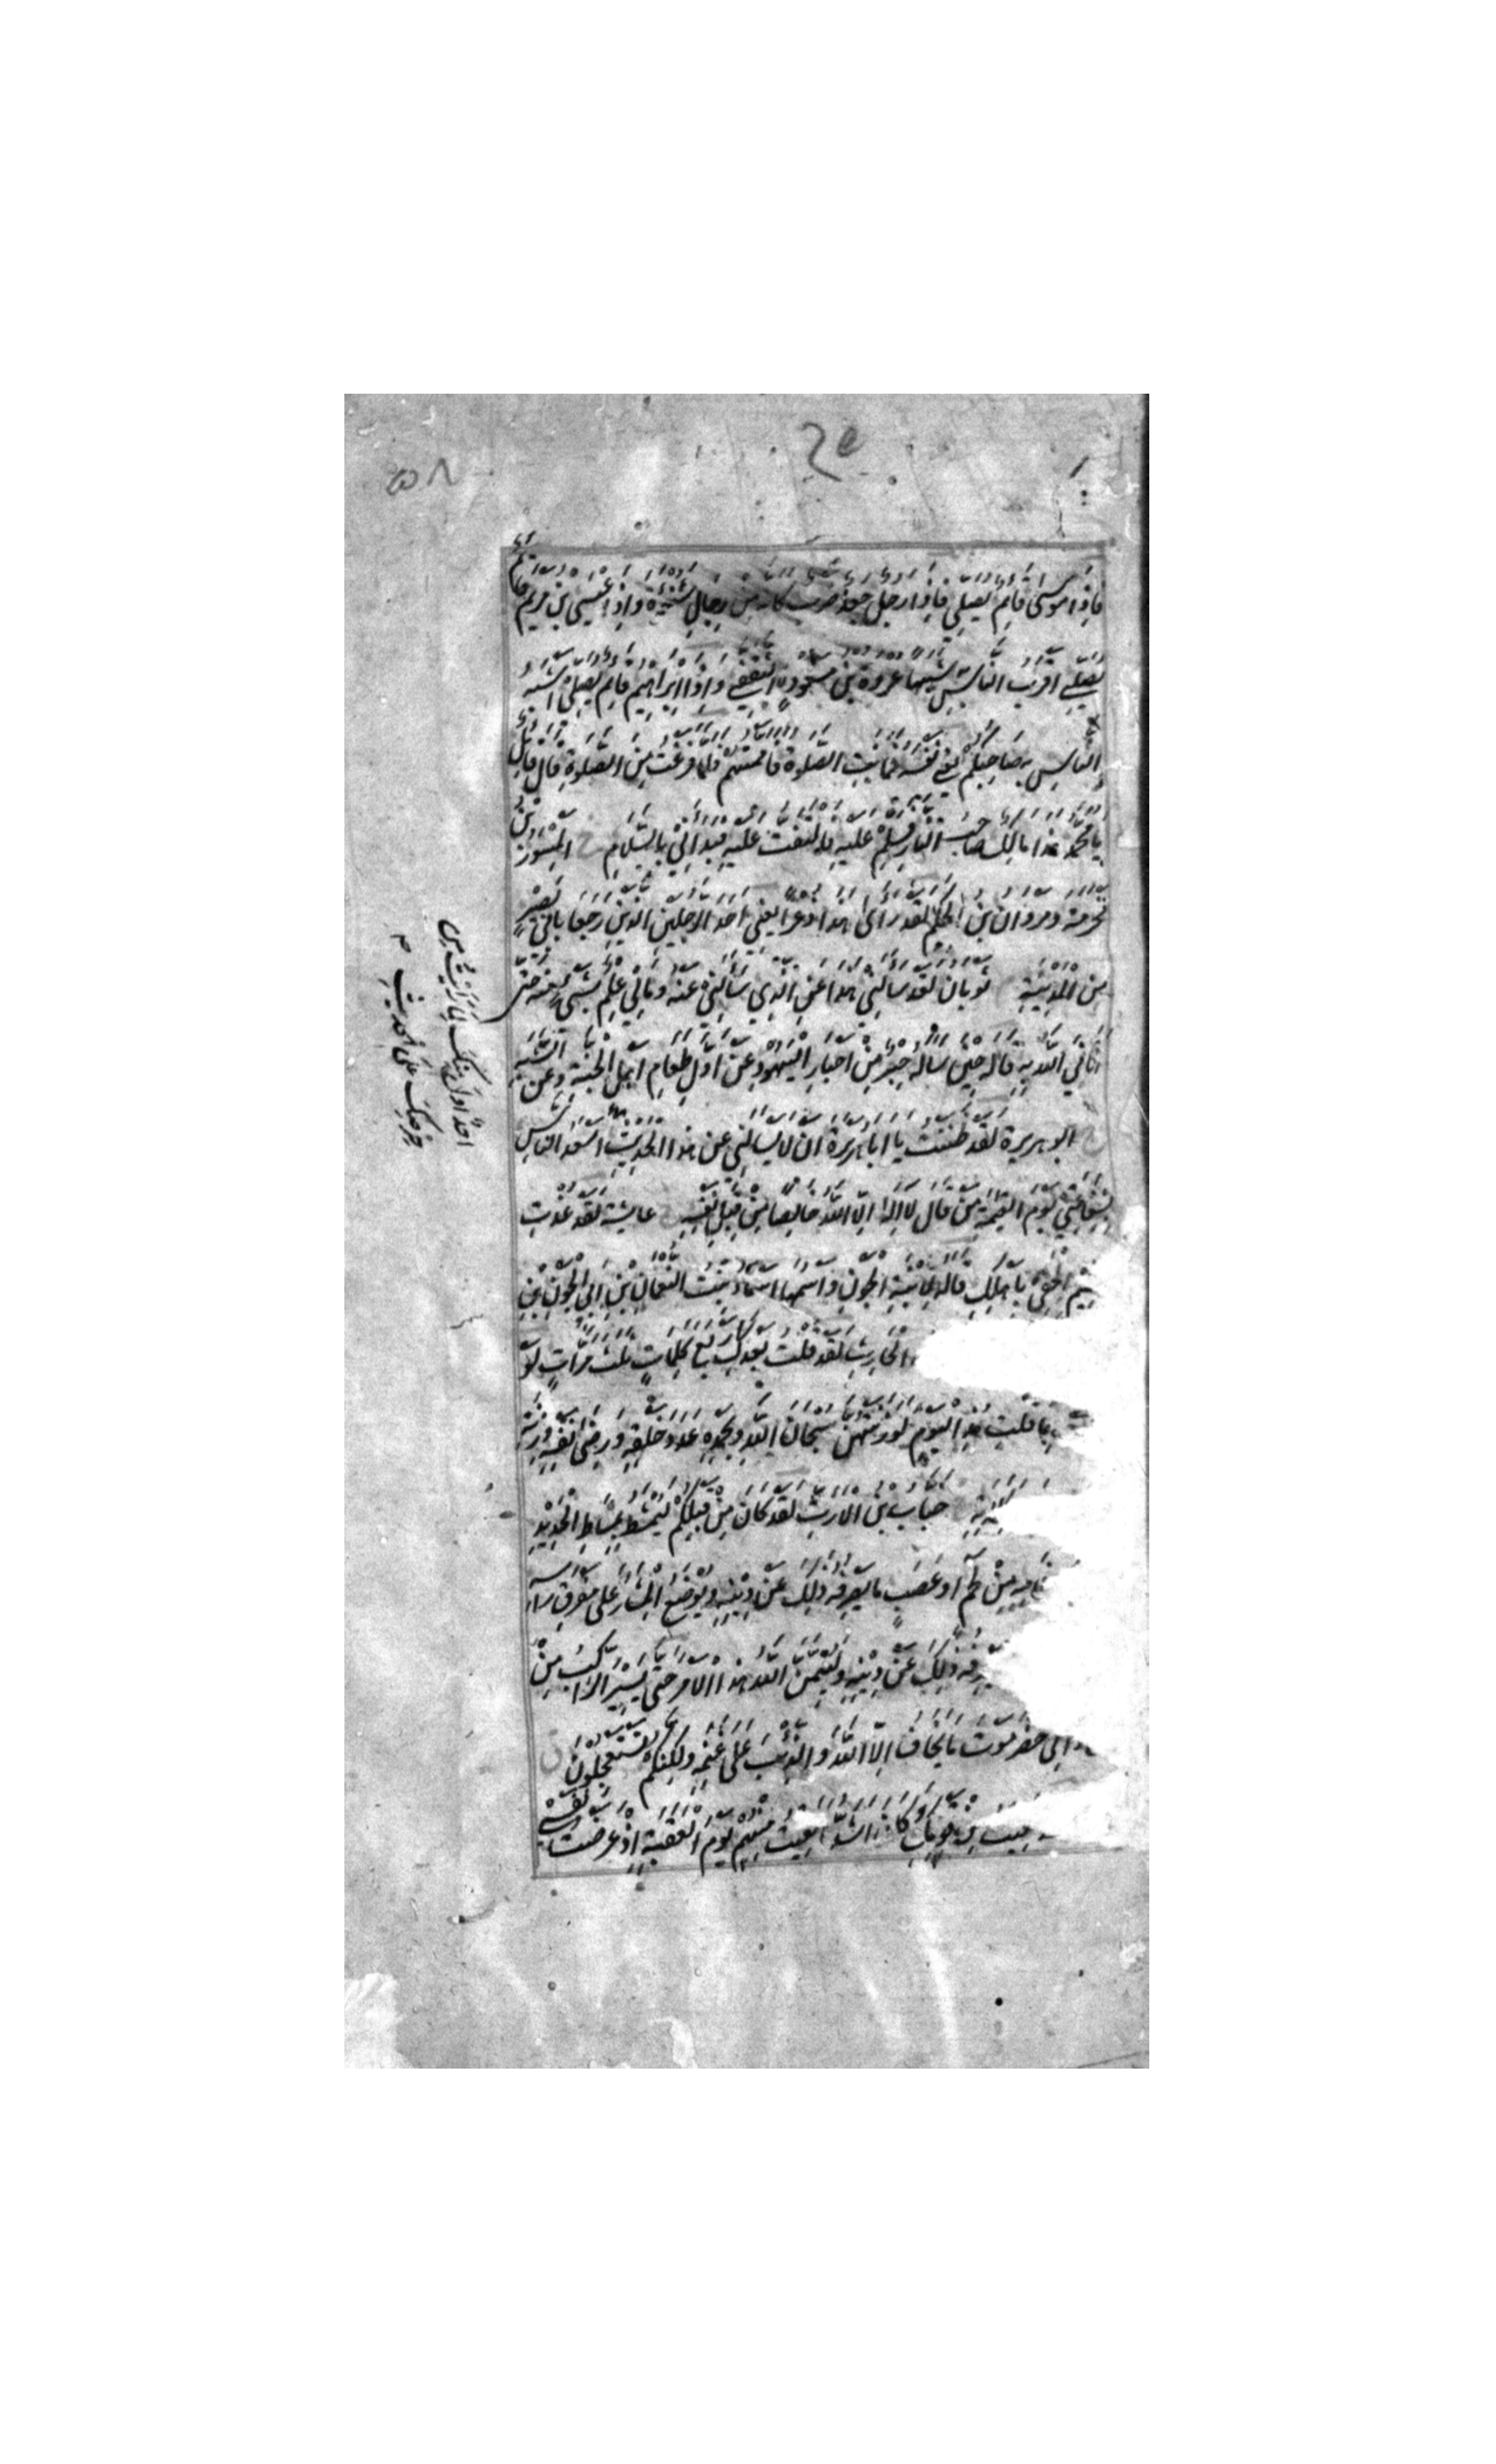 فاذا موسى قائم يصلي فاذا رجل جعد ضرب كانه من رجال شنوءة واذا عيسى بن مريم قائم
يصلي اقرب الناس شبها عروة بن مسعود الثقفي واذا ابراهيم قائم يصلي اشبه
الناس به صاحبكم يعني نفسه فحانت الصلوة فاممتهم فلما فرغت من الصلوة قال قائل
يا محمد هذا مالك صاحب النار فسلم عليه فالتفت عليه فبدأني بالسلام خ المسور بن
مخرمة ومروان بن الحكم لقد رأى هذا ذعرا يعني احد الرجلين الذين رجعا بابي بصير
من المدينة ثوبان لقد سألني هذا عن الذي سألني عنه ومالي علم بشيء منه حتى
اتاني الله به قاله حين ساله حبر من احبار اليهود عن اول طعام اهل الجنة وعن الشبه
خ ابو هريرة لقد ظننت يا ابا هريرة ان لا يسالني عن هذا الحديث
اسعد الناس
بشفاعتي يوم القيمة من قال لا اله الا الله خالصا من قبل نفسه خ عايشة لقد عذت
الحقي باهلك قاله لابنة الجون واسمها اسماء بنت النعمان بن ابي الجون بن
الحارث لقد قلت بعدك اربع كلمات ثلث مرات لو
بما قلت هذا اليوم لوزنتهن سبحان الله وبحمده عدد خلقه ورضى نفسه وزنة
خباب بن الارت لقد كان من قبلكم ليمشط بمشاط الحديد
عظامه من لحم او عصب ما يصرفه ذلك عن دينه ويوضع المنشار على مفرق راسه
ذلك عن دينه وليتمن الله هذا الامر حتى يسير الراكب من
الى حضرموت ما يخاف الا الله والذئب على غنمه ولكنكم تستعجلون
لقيت من قومك وكان اشد ما لقيت منهم يوم العقبة اذ عرضت نفسي